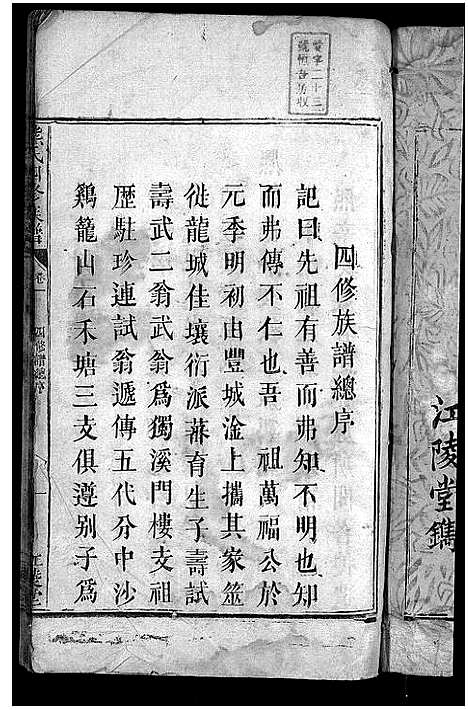 江陵堂鐫
四修族譜總序
記曰先祖有善而弗知不明也知
而弗傳不仁也吾　祖萬福公於
元季明初由豐城淦上攜其家筮
徙龍城佳壤衍派蕃育生子壽試
壽武二翁武翁爲獨溪門樓支祖
歴駐珍連試翁遞傳五代分中沙
鷄籠山石禾塘三支俱遵别子爲
熊氏四修族譜
四修譜總序
江陵堂